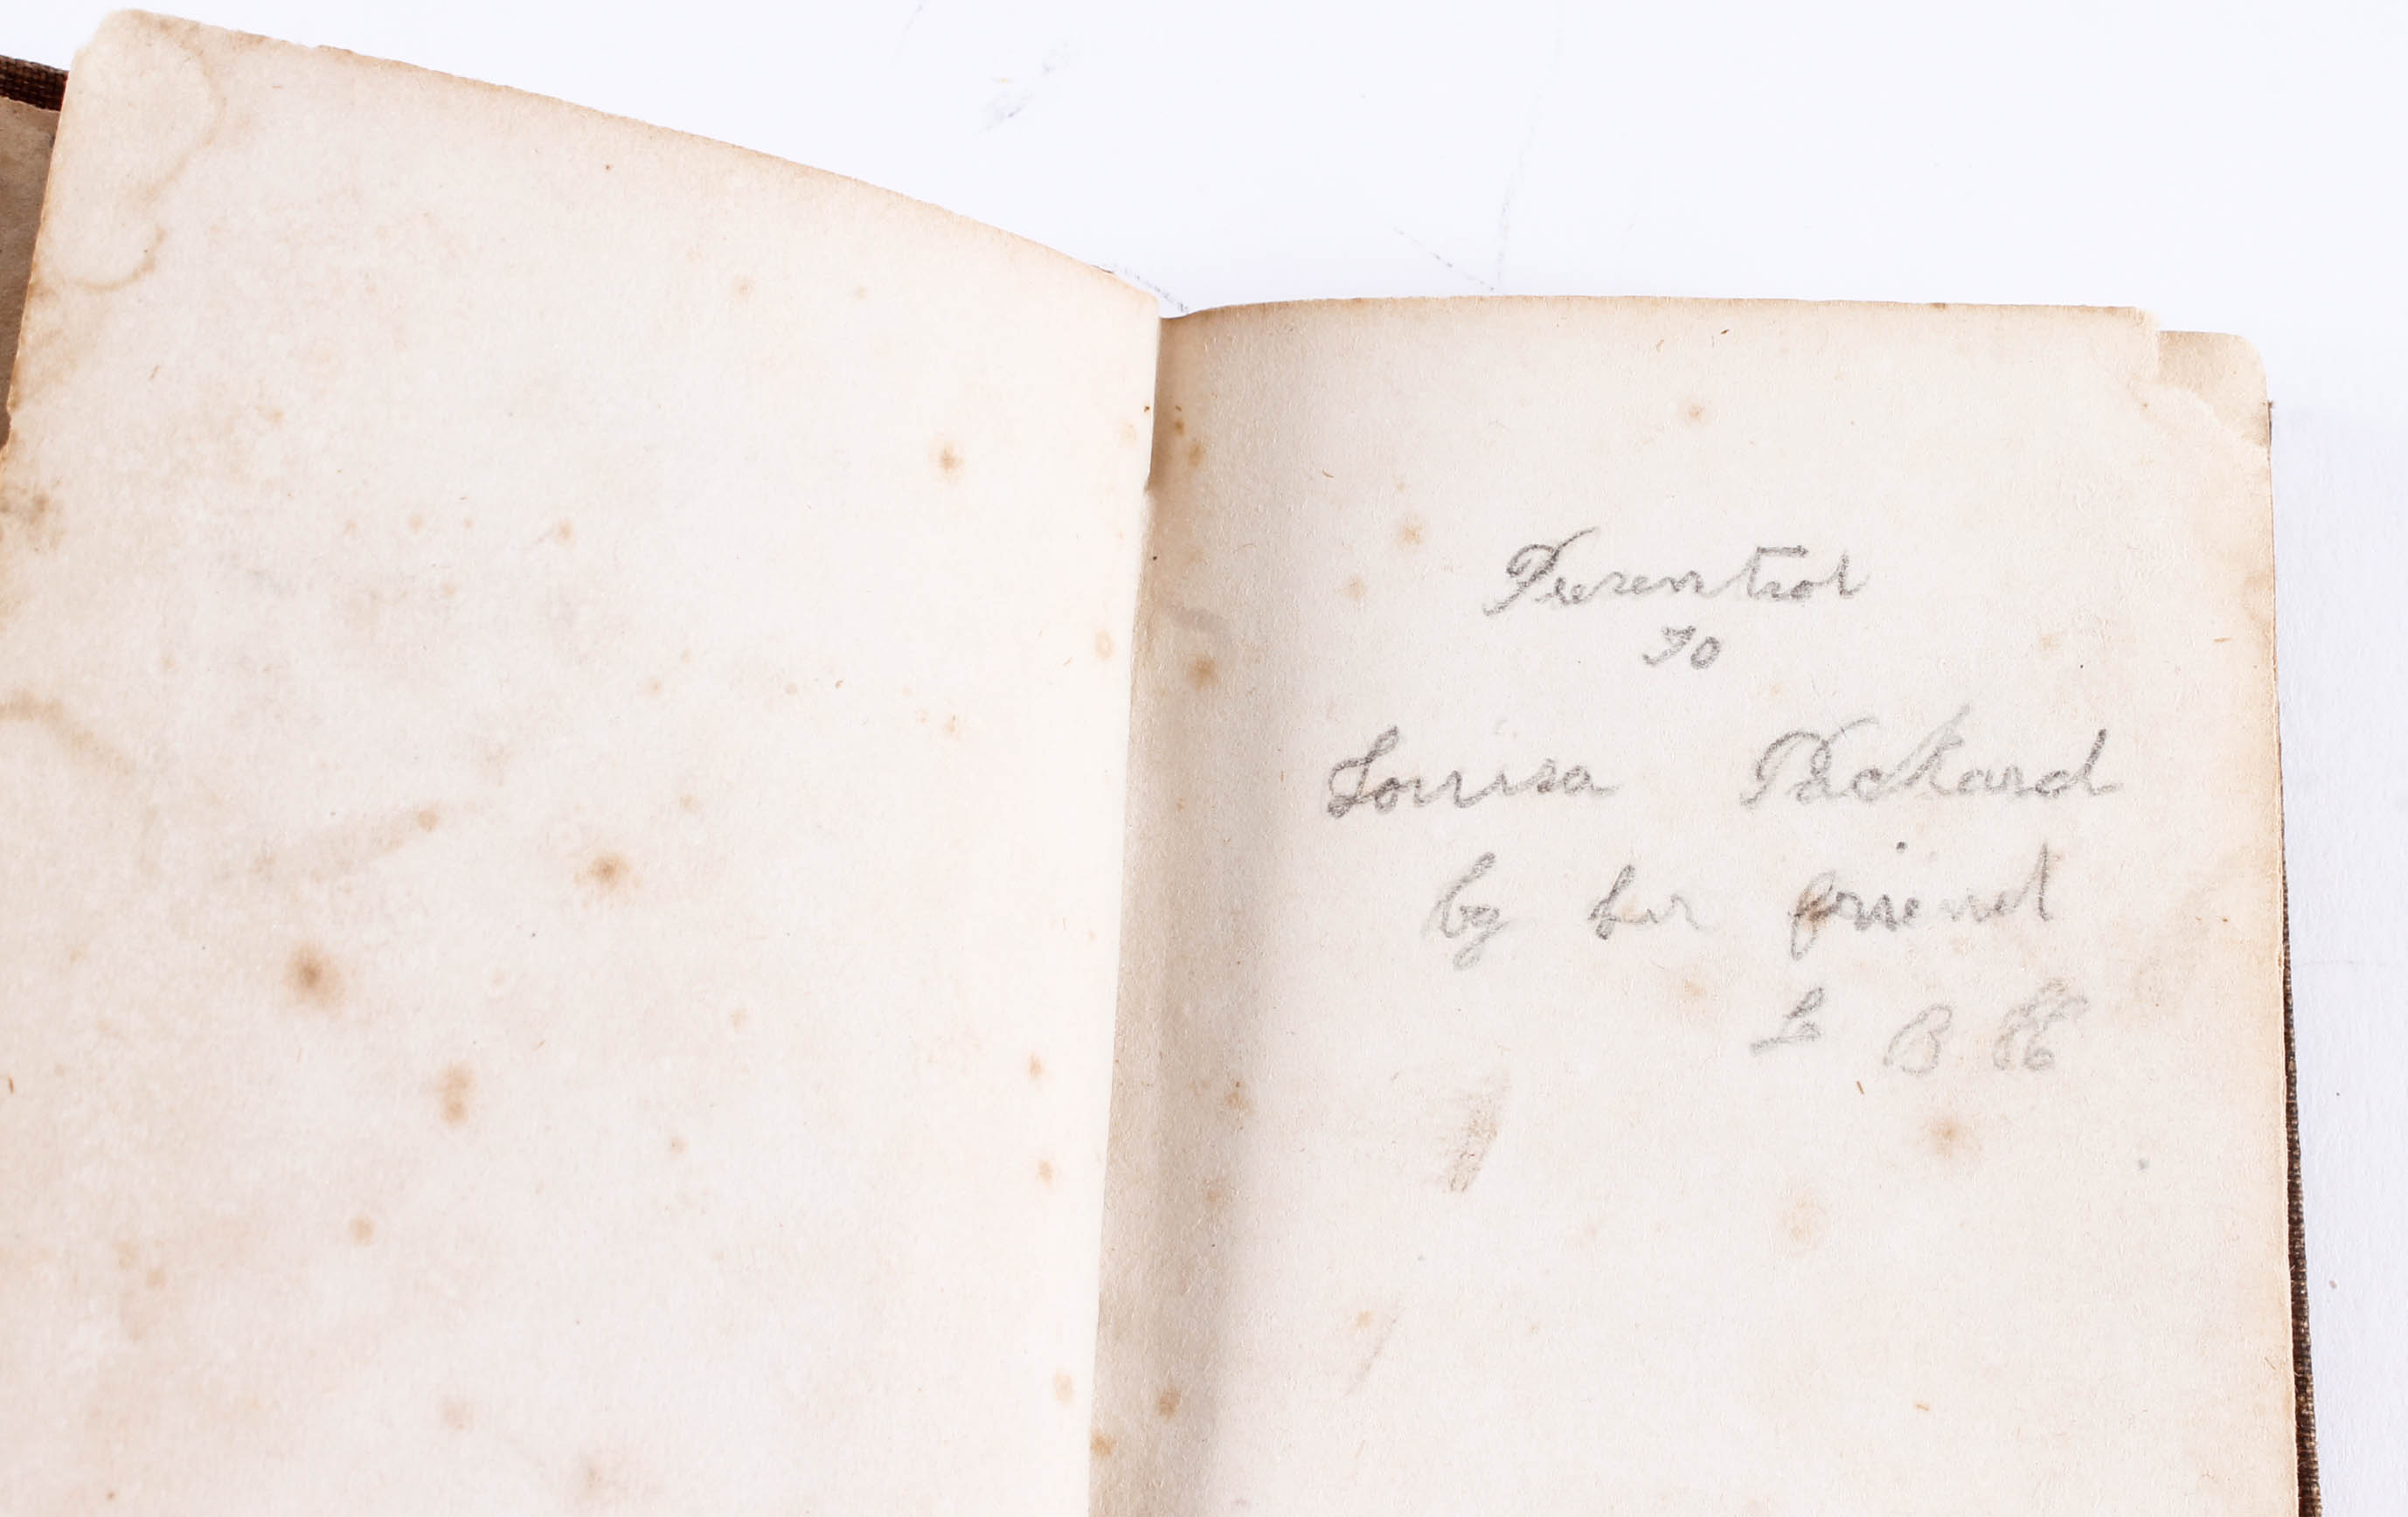 Presented
to
Louisa Packard
by her friend
L B